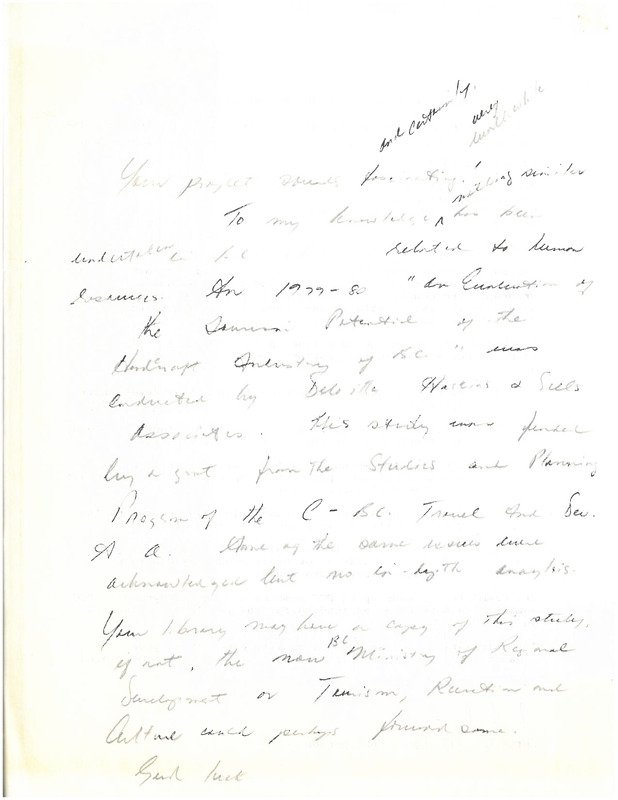 and certainly very
worthwhile
Your project sounds fascinating! nothing similar
To my knowledge ^ has been
undertaken in BC related to human
resources. In 1979-80 "An Evaluation of
the Tourism Potential of the
Handcraft Industry of BC" was
conducted by Deloitte Haskins & Sells
Associates. This study was funded
by a grant from the Studies and Planning
Program of the C - BC Travel Ind Dev.
of the same issues were
acknowledged but no in-depth analysis.
Your library may have a copy of this study,
if not, the new BC Ministry of Regional
Development or Tourism, Recreation and
Culture could perhaps forward same.
Good luck